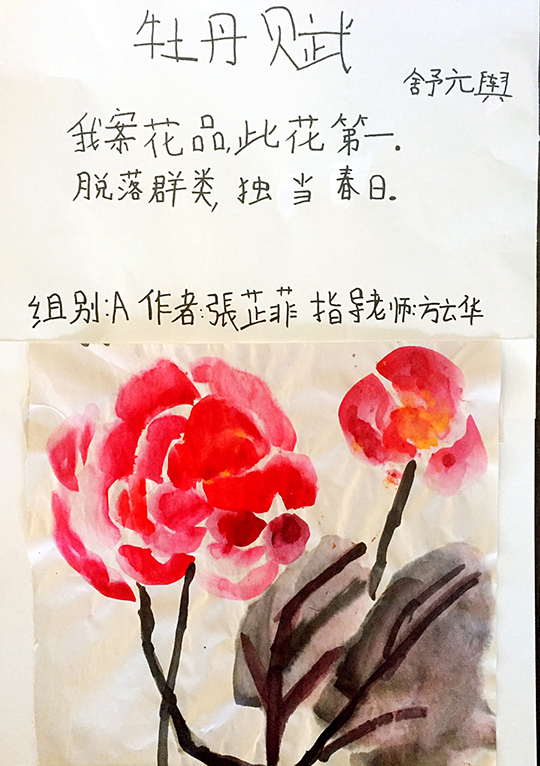 牡丹赋
舒元舆
我案花品,此花第一.
脱落群类,独当春日.
组别:A 作者:張芷菲 指导老师:方云华